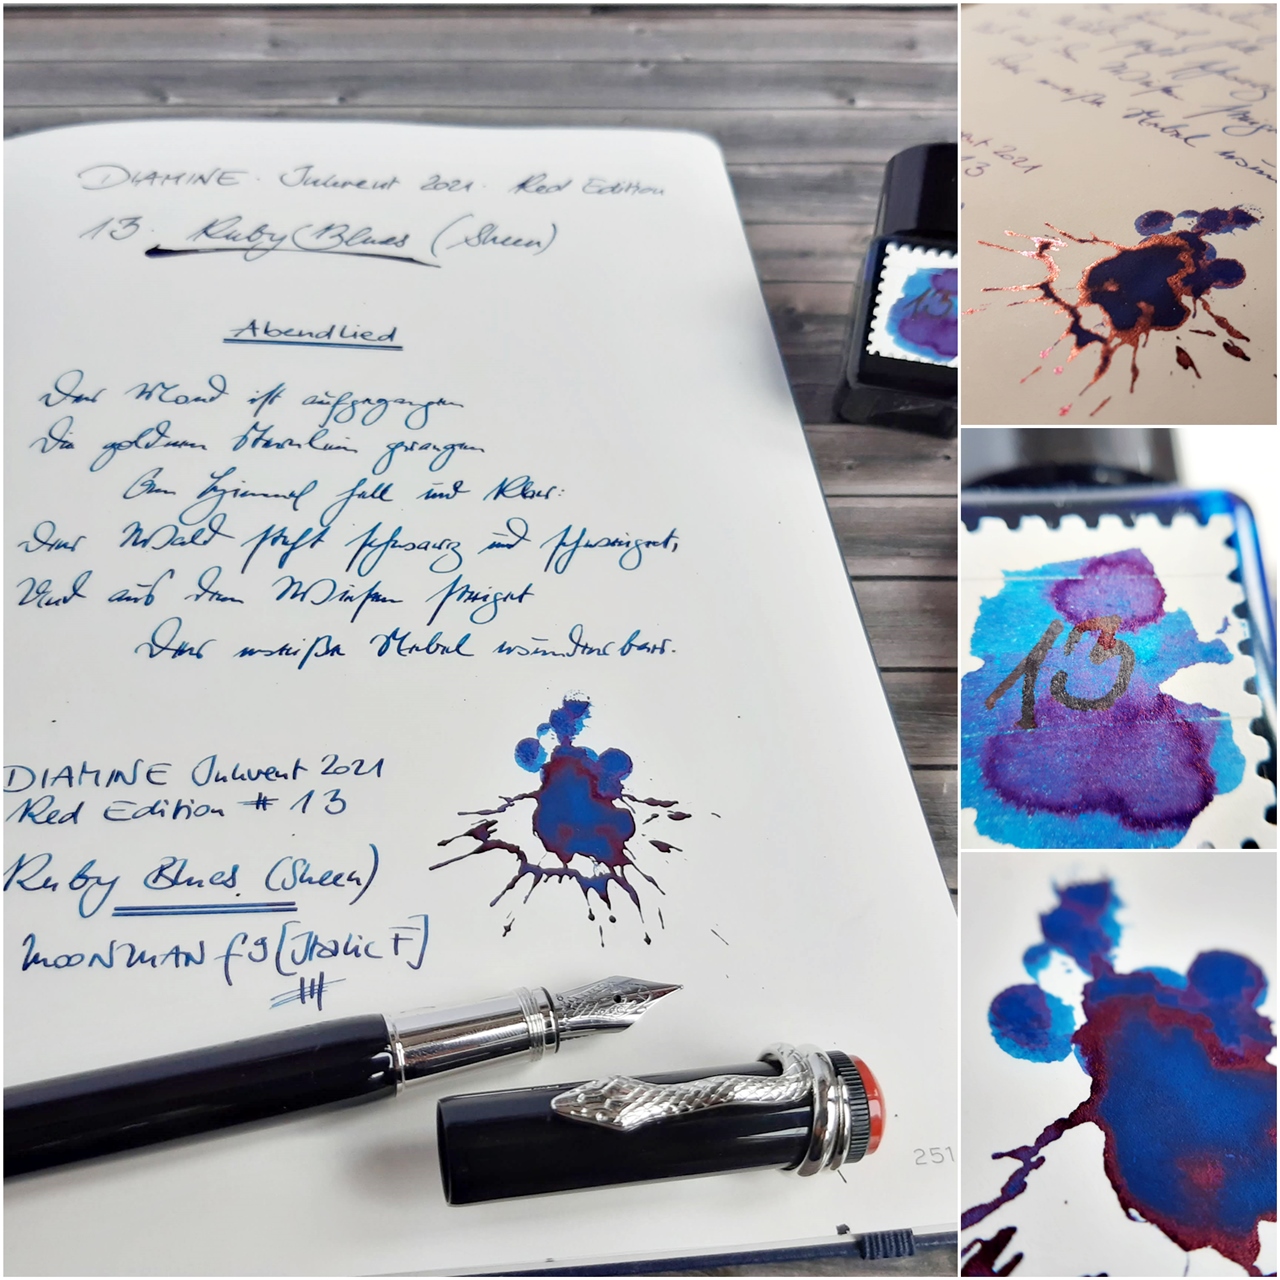 DIAMINE · Inkvent 2021 · Red Edition
13. Ruby Blues (Sheen)
Abendlied
Der Mond ist aufgegangen
Die goldnen Sternlein prangen
Am Himmel hell und klar:
Der Wald steht schwarz und schweiget,
Und aus den Wiesen steiget
Der weiße Nebel wunderbar.
DIAMINE Inkvent 2021
Red Edition # 13
Ruby Blues (Sheen)
MOONMAN f9 [Italic F]
251
13
2021
13
weiße Nebel
13